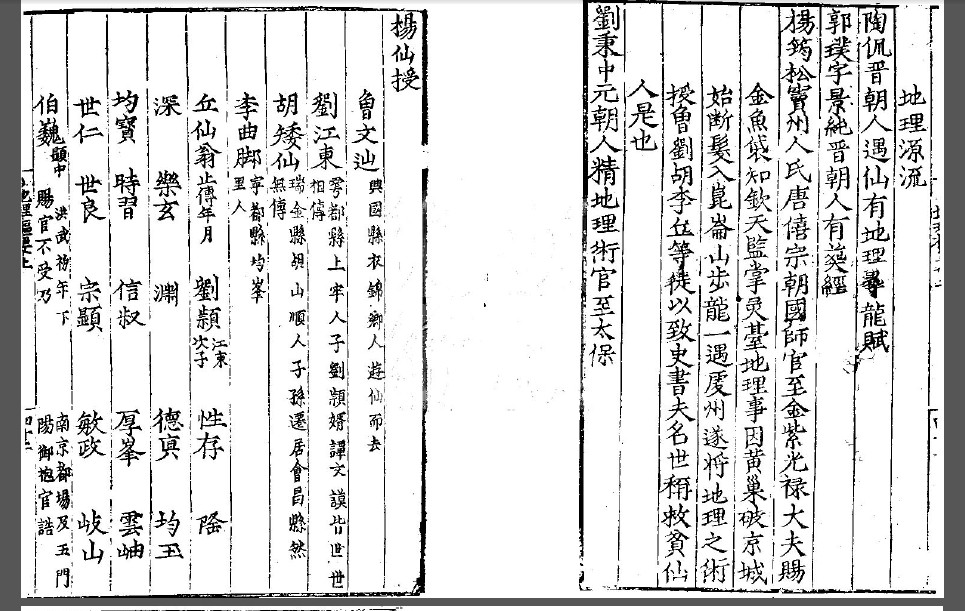 地理源流
陶侃晋朝人遇仙有地理尋龍賦
郭璞字景純晋朝人有塟經
楊筠松竇州人氏唐僖宗朝國師官至金紫光禄大夫賜
金魚袋知欽天監掌灵臺地理事因黄巢破京城
始断髮入崑崙山步龍一遇虔州遂将地理之術
授魯劉胡李丘等徒以致史書夫名世稱救貧仙
人是也
劉秉中元朝人精地理術官至太保
楊仙授
魯文辿 興國縣衣錦鄉人遊仙而去
劉江東 雩都縣上牢人子劉頴婿譚文謨皆世世
相傳
胡矮仙 瑞金縣胡山順人子孫遷居會昌縣然
無傳
李曲脚 寧都縣均峯
里人
丘仙翁 止傳年月 劉頴 江東
次子 性存 隆
深 樂玄 淵 德真 均玉
均寶 時習 信叔 厚峯 雲岫
世仁 世良 宗顕 敏政 岐山
伯巍 顕中 洪武初年下
賜官不受乃
南京都場及五門
賜御袍官誥